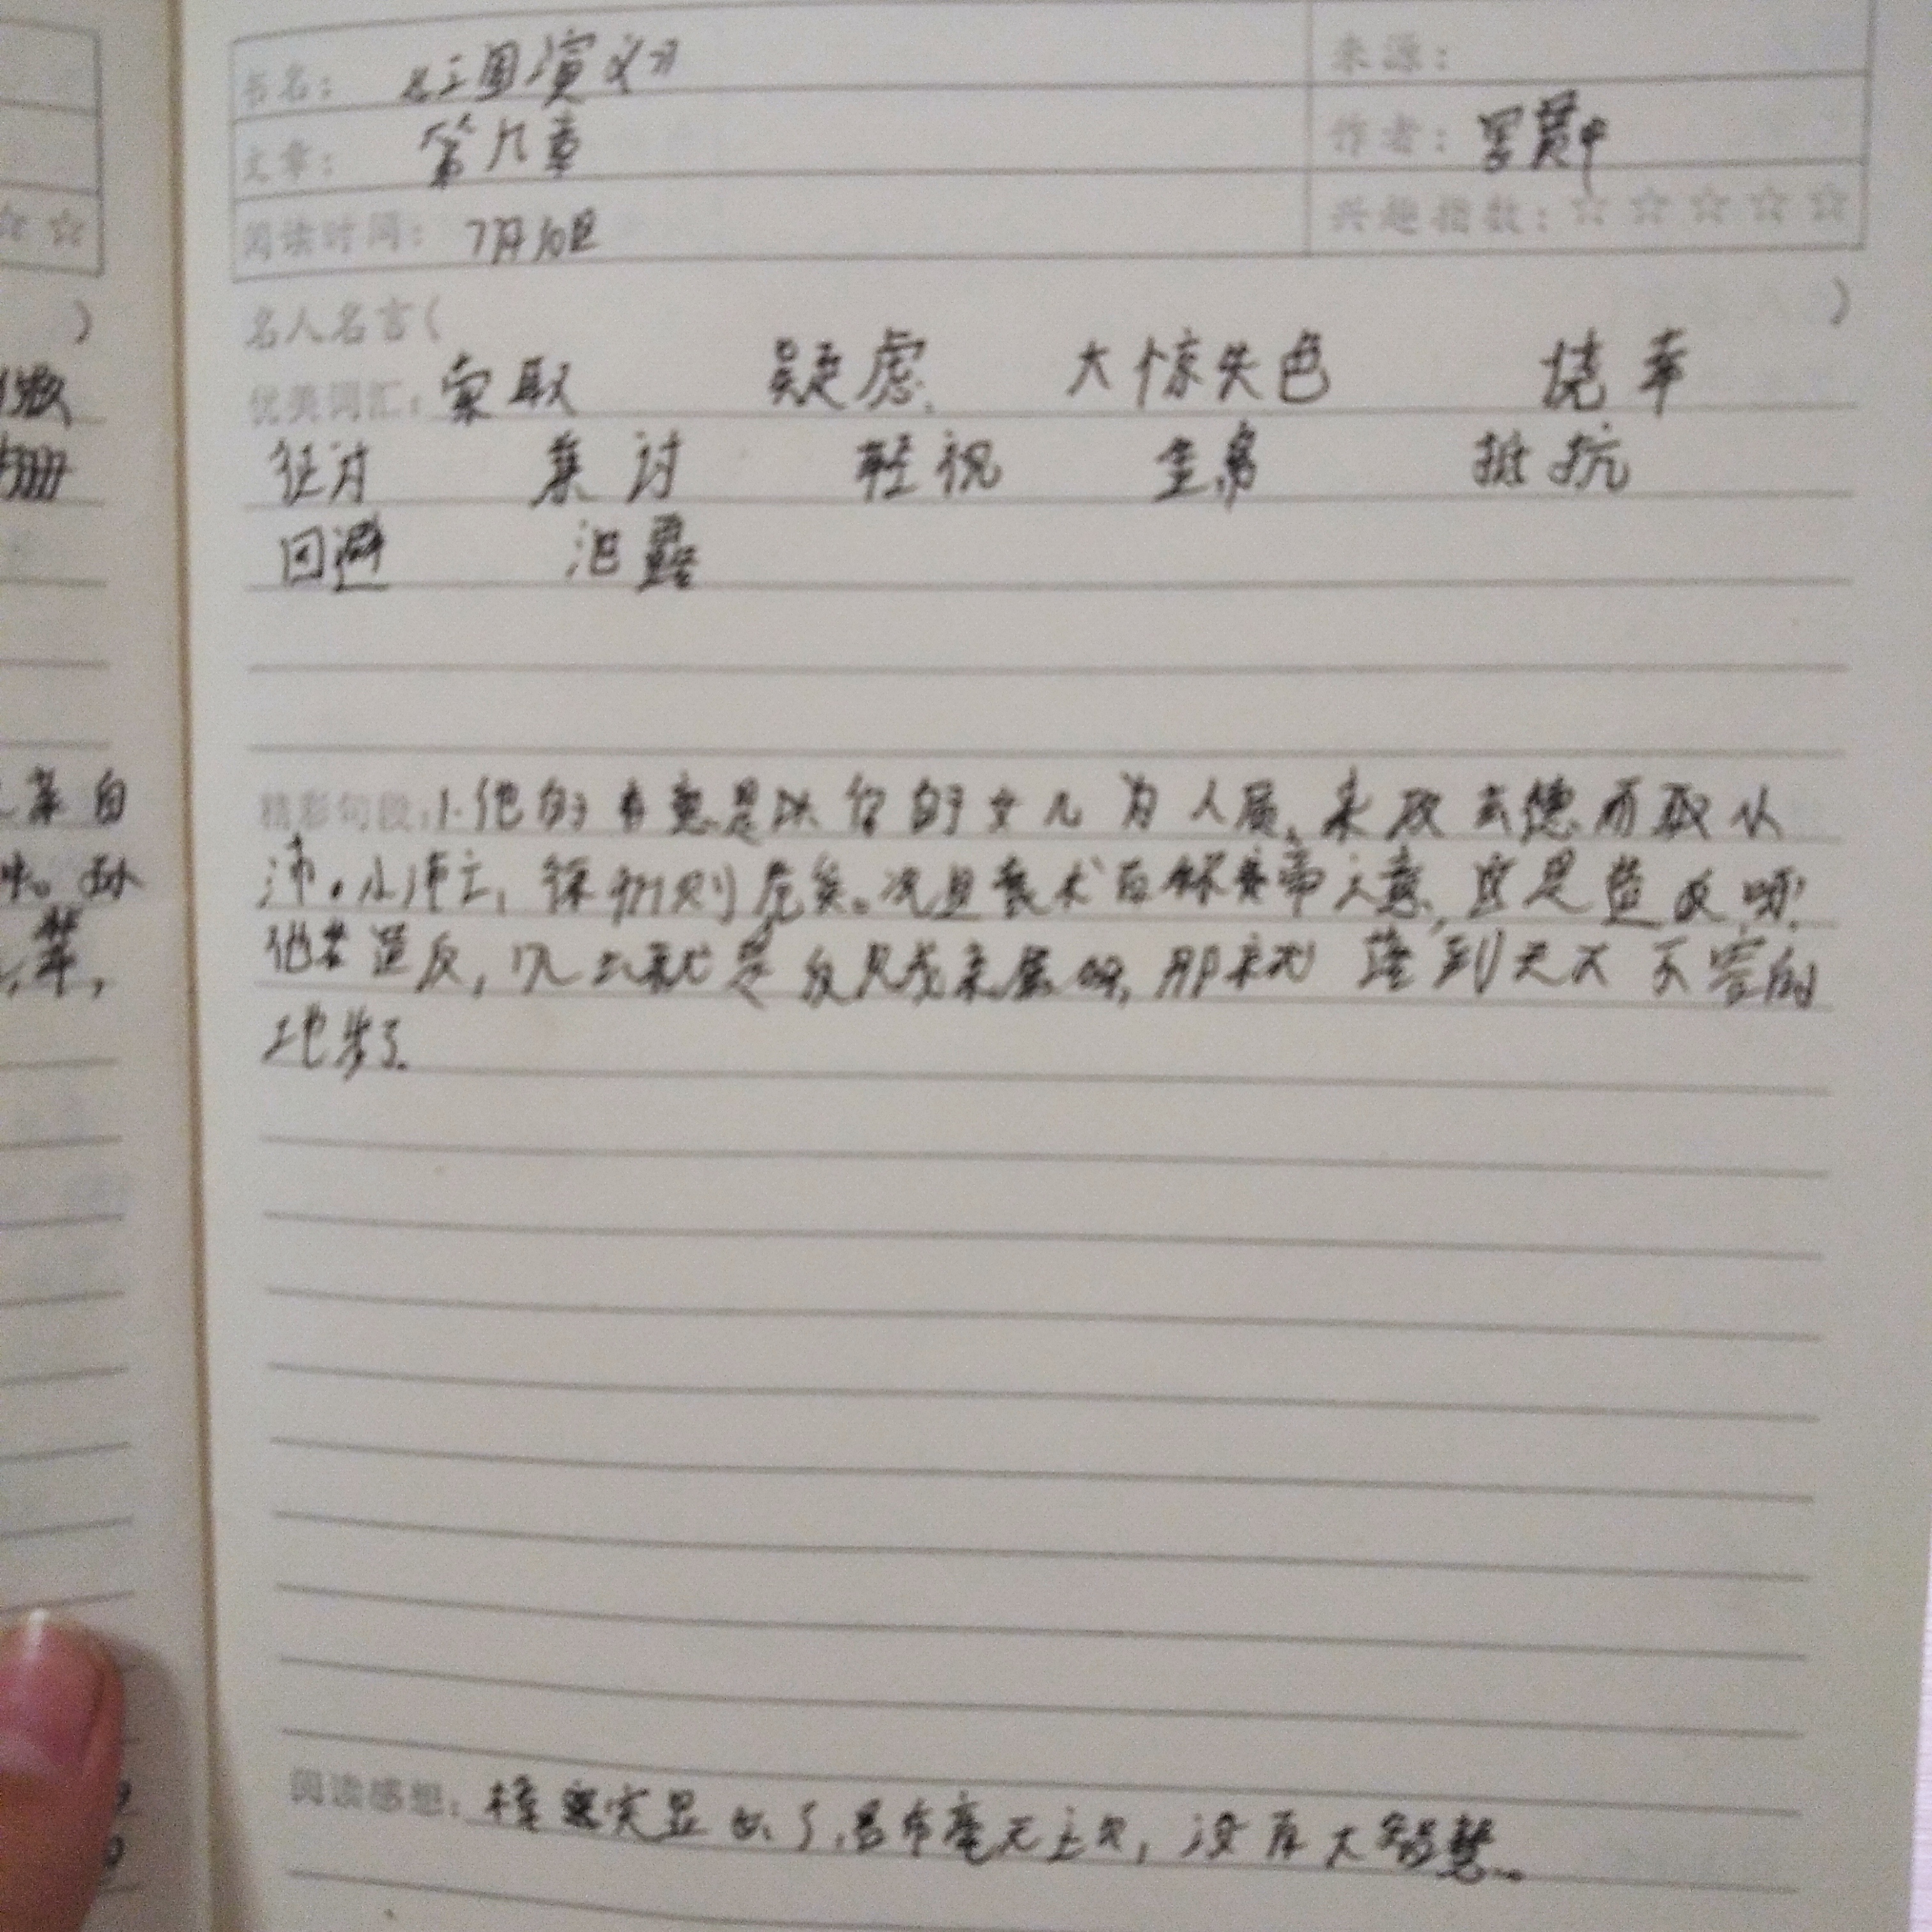 书名： 《三国演义》
来源：
文章： 第九章
作者： 罗贯中
阅读时间： 7月10日
兴趣指数：☆☆☆☆☆
名人名言( )
优美词汇： 索取 疑虑 大惊失色 侥幸
征讨 集讨 轻视 坐席 抵抗
回避 泄露
精彩句段：1.他的本意是以你的女儿为人质,来攻玄德而取小
沛。小沛亡,徐州则危矣。况且袁术有称帝之意,这是造反呀!
他若造反,那么就是反贼家属呀,那就落到天下不容的
地步了.
阅读感想： 突显出了,吕布毫无主见,没有大智慧。